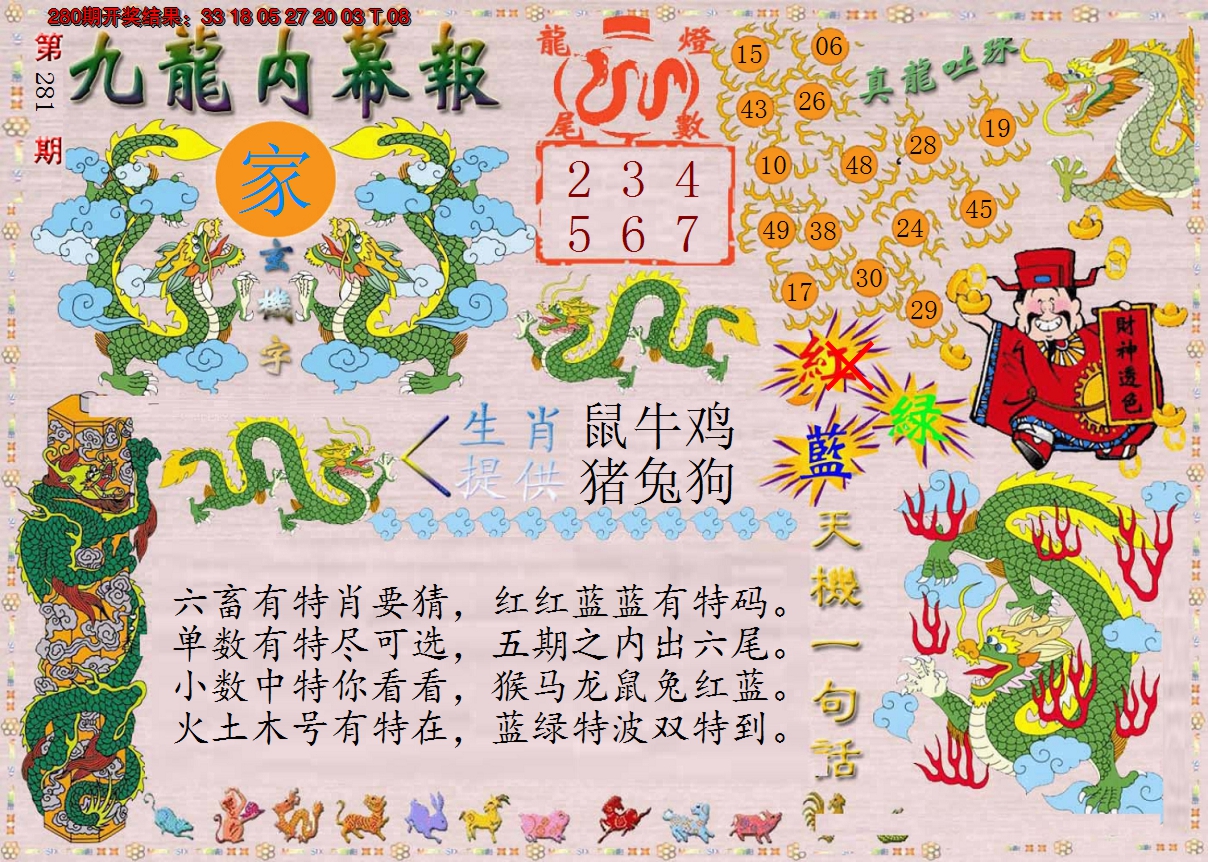 280期开奖结果：33 18 05 27 20 03 T 08
第281期
九龍内幕報
家
玄機字
龍燈
尾數
2 3 4
5 6 7
真龍吐珠
15 06
43 26
28 19
10 48
49 38 24 45
17 30 29
財神透色
紅
绿
藍
生肖 鼠牛鸡
提供 猪兔狗
天機一句话
六畜有特肖要猜，红红蓝蓝有特码。
单数有特尽可选，五期之内出六尾。
小数中特你看看，猴马龙鼠兔红蓝。
火土木号有特在，蓝绿特波双特到。